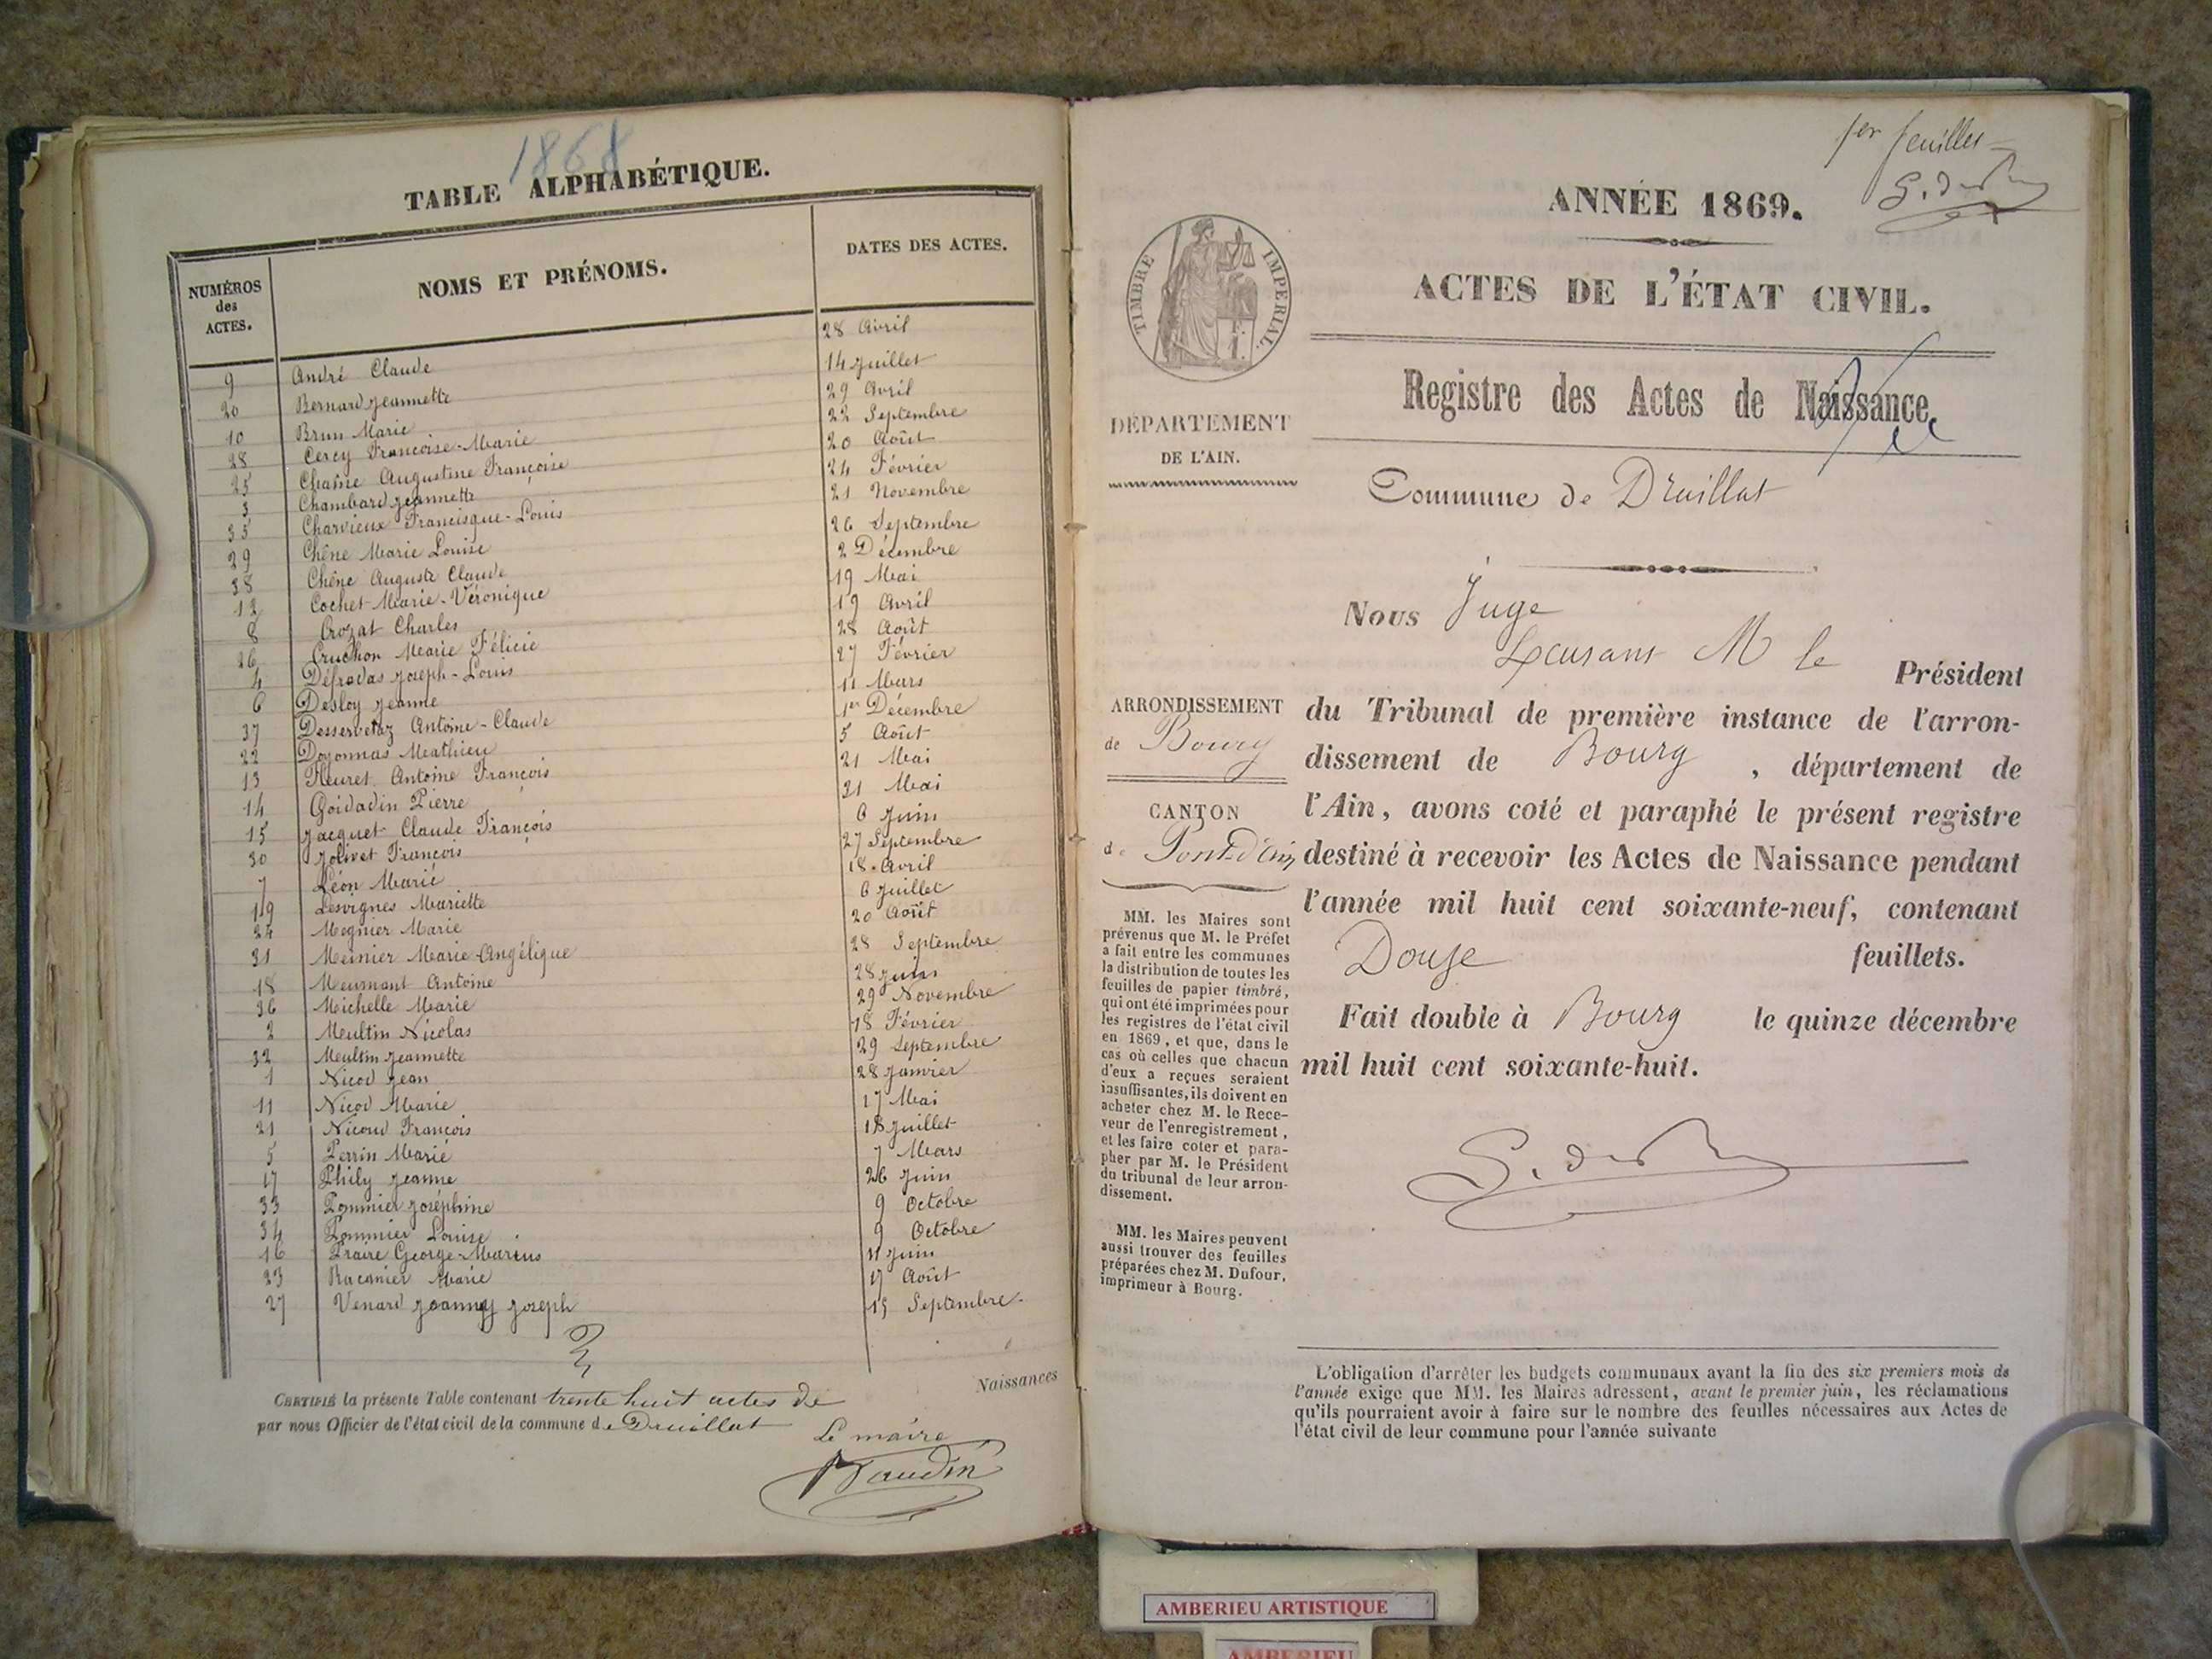 1868
TABLE ALPHABÉTIQUE.
NUMÉROS des ACTES. NOMS ET PRÉNOMS. DATES DES ACTES.
9 André Claude 28 Avril
20 Bernard Jeannette 14 Juillet
10 Brun Marie 29 Avril
28 Cercy Francoise-Marie 22 Septembre
25 Chaîne Augustine Françoise 20 Août
3 Chambard Jeannette 24 Février
35 Charvieux Francisque-Louis 21 Novembre
29 Chêne Marie Louise 26 Septembre
38 Chêne Auguste Claude 2 Décembre
12 Cochet Marie-Véronique 19 Mai
8 Crozat Charles 19 Avril
26 Cruchon Marie Félicie 28 Août
4 Défradas Joseph-Louis 27 Février
6 Desloy Jeanne 11 Mars
37 Desservetaz Antoine-Claude 1er Décembre
22 Doyonnas Mathieu 5 Août
13 Fleuret Antoine François 21 Mai
14 Goidadin Pierre 21 Mai
15 Jacquet Claude François 6 Juin
30 Jolivet François 27 Septembre
7 Léon Marie 18 Avril
19 Lesvignes Mariette 6 Juillet
24 Mognier Marie 20 Août
31 Meinier Marie-Angélique 28 Septembre
18 Meumant Antoine 28 Juin
36 Michelle Marie 29 Novembre
2 Moultin Nicolas 18 Février
32 Moultin Jeannette 29 Septembre
1 Nicod Jean 28 Janvier
11 Nicod Marie 17 Mai
21 Nicoud François 18 Juillet
5 Perrin Marie 7 Mars
17 Phily Jeanne 26 Juin
33 Pommier Joséphine 9 Octobre
34 Pommier Louise 9 Octobre
16 Praire George-Marius 11 Juin
23 Racanier Marie 17 Août
27 Venard Joanny Joseph 15 Septembre
Naissances
CERTIFIÉ la présente Table contenant trente huit actes de
par nous Officier de l'état civil de la commune de Druillat
Le maire
1er feuillet
ANNÉE 1869.
ACTES DE L'ÉTAT CIVIL.
TIMBRE IMPÉRIAL.
Registre des Actes de Naissance.
DÉPARTEMENT
DE L'AIN.
Commune de Druillat
Nous Juge
M le Président
ARRONDISSEMENT
de Bourg
CANTON
d. Pont-d'Ain
du Tribunal de première instance de l'arron-
dissement de Bourg, département de
l'Ain, avons coté et paraphé le présent registre
destiné à recevoir les Actes de Naissance pendant
l'année mil huit cent soixante-neuf, contenant
Douze feuillets.
Fait double à Bourg le quinze décembre
mil huit cent soixante-huit.
MM. les Maires sont
prévenus que M. le Préfet
a fait entre les communes
la distribution de toutes les
feuilles de papier timbré,
qui ont été imprimées pour
les registres de l'état civil
en 1869, et que, dans le
cas où celles que chacun
d'eux a reçues seraient
insuffisantes, ils doivent en
acheter chez M. le Rece-
veur de l'enregistrement,
et les faire coter et para-
pher par M. le Président
du tribunal de leur arron-
dissement.
MM. les Maires peuvent
aussi trouver des feuilles
préparées chez M. Dufour,
imprimeur à Bourg.
L'obligation d'arrêter les budgets communaux avant la fin des six premiers mois de
l'année exige que MM. les Maires adressent, avant le premier juin, les réclamations
qu'ils pourraient avoir à faire sur le nombre des feuilles nécessaires aux Actes de
l'état civil de leur commune pour l'année suivante
AMBERIEU ARTISTIQUE
AMBERIEU